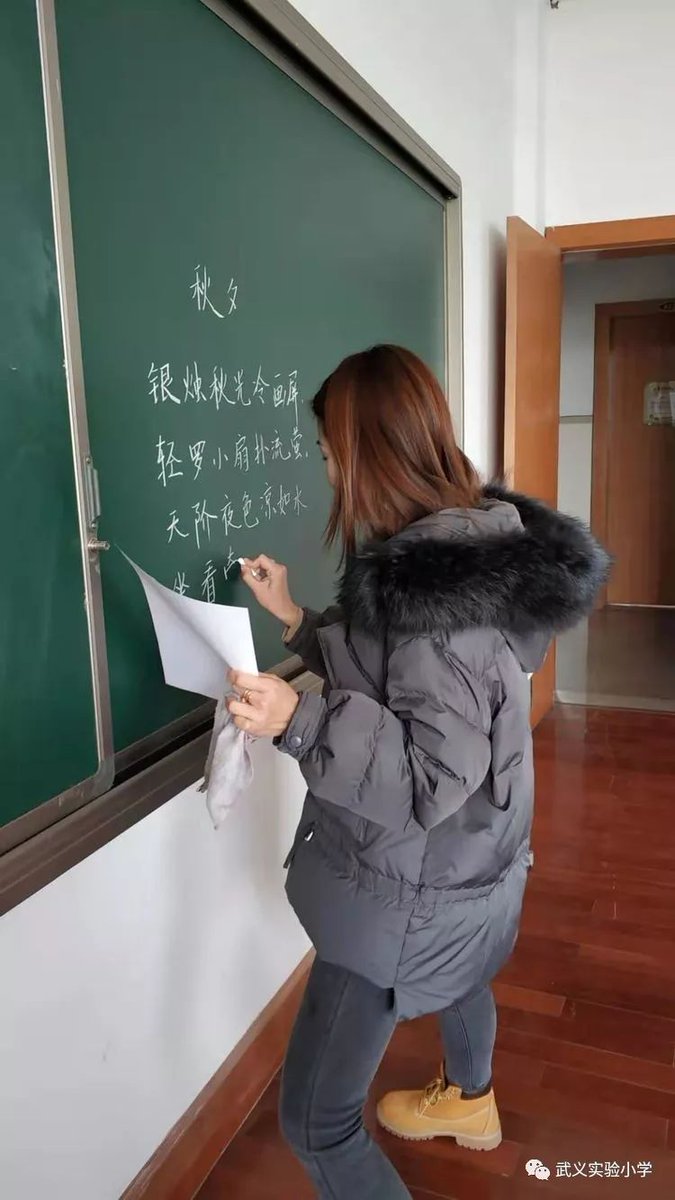 秋夕
银烛秋光冷画屏,
轻罗小扇扑流萤。
天阶夜色凉如水
坐看
武义实验小学